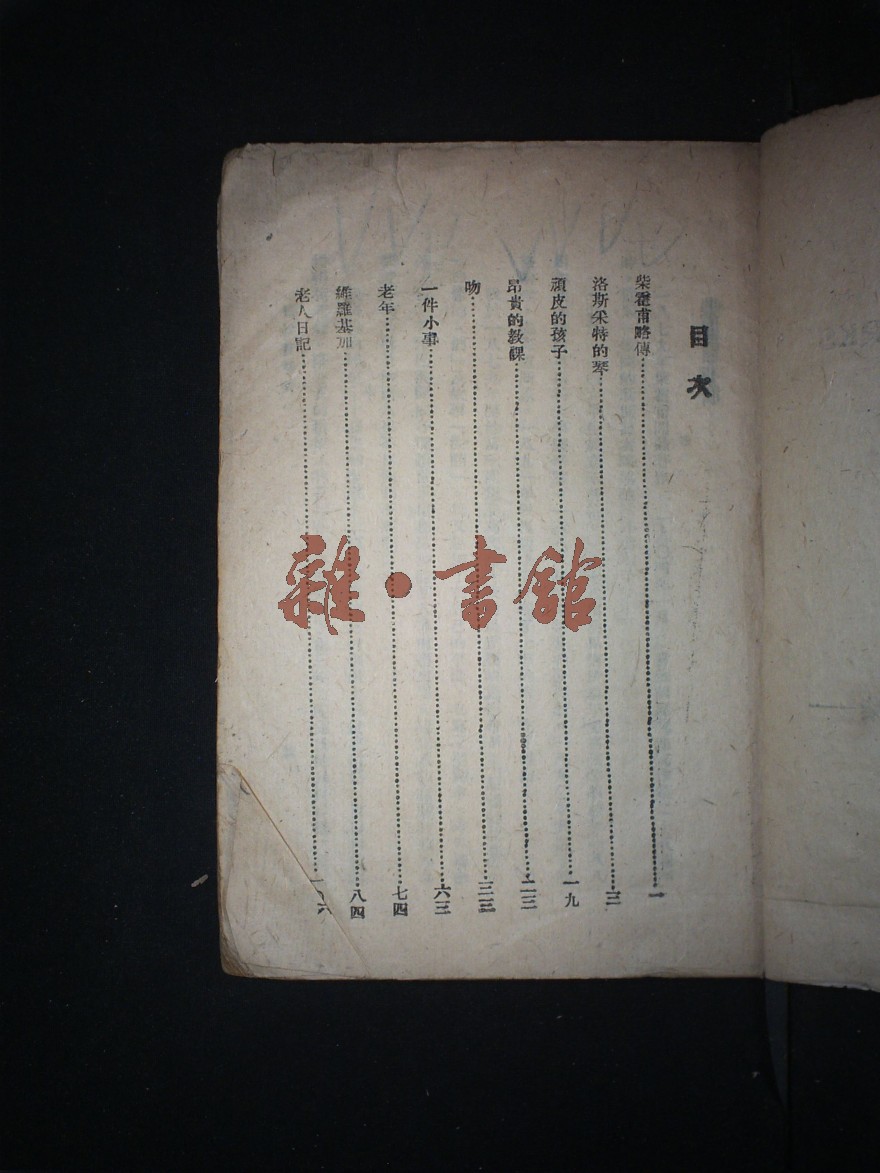 目次
柴霍甫略傳……一
洛斯采特的琴……三
頑皮的孩子……一九
昂貴的教課……二三
吻……三三
一件小事……六三
老年……七四
維羅基加……八四
老人日記……一〇六
雜·書館